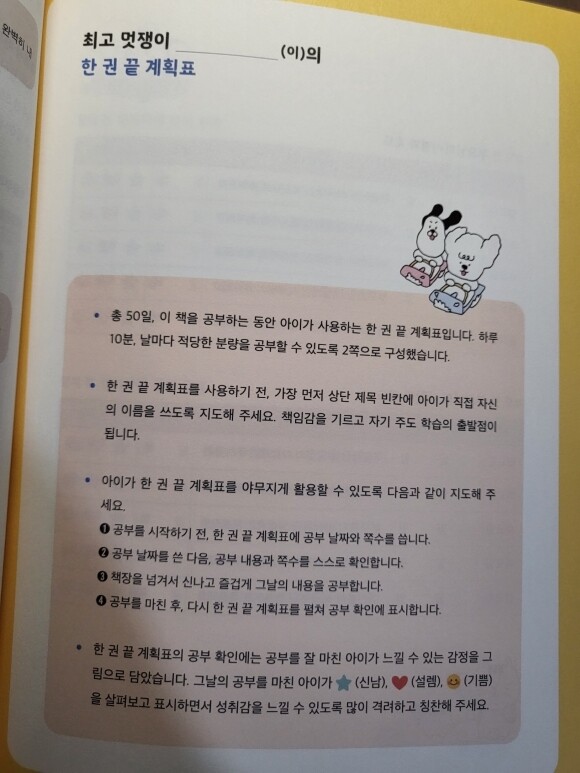 최고 멋쟁이 ____________ (이)의
한 권 끝 계획표
• 총 50일, 이 책을 공부하는 동안 아이가 사용하는 한 권 끝 계획표입니다. 하루
10분, 날마다 적당한 분량을 공부할 수 있도록 2쪽으로 구성했습니다.
• 한 권 끝 계획표를 사용하기 전, 가장 먼저 상단 제목 빈칸에 아이가 직접 자신
의 이름을 쓰도록 지도해 주세요. 책임감을 기르고 자기 주도 학습의 출발점이
됩니다.
• 아이가 한 권 끝 계획표를 야무지게 활용할 수 있도록 다음과 같이 지도해 주
세요.
❶ 공부를 시작하기 전, 한 권 끝 계획표에 공부 날짜와 쪽수를 씁니다.
❷ 공부 날짜를 쓴 다음, 공부 내용과 쪽수를 스스로 확인합니다.
❸ 책장을 넘겨서 신나고 즐겁게 그날의 내용을 공부합니다.
❹ 공부를 마친 후, 다시 한 권 끝 계획표를 펼쳐 공부 확인에 표시합니다.
• 한 권 끝 계획표의 공부 확인에는 공부를 잘 마친 아이가 느낄 수 있는 감정을 그
림으로 담았습니다. 그날의 공부를 마친 아이가 (신남), (설렘), (기쁨)
을 살펴보고 표시하면서 성취감을 느낄 수 있도록 많이 격려하고 칭찬해 주세요.